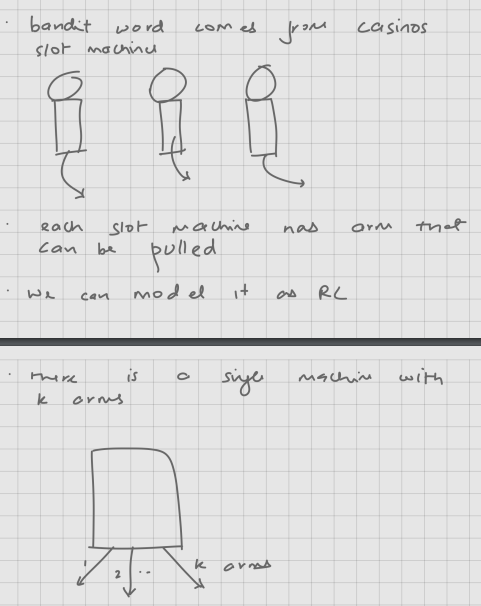 · bandit word comes from casinos
slot machine
· each slot machine has arm that
can be pulled
· we can model it as RL
· there is a single machine with
k arms
1 2 .. k arms